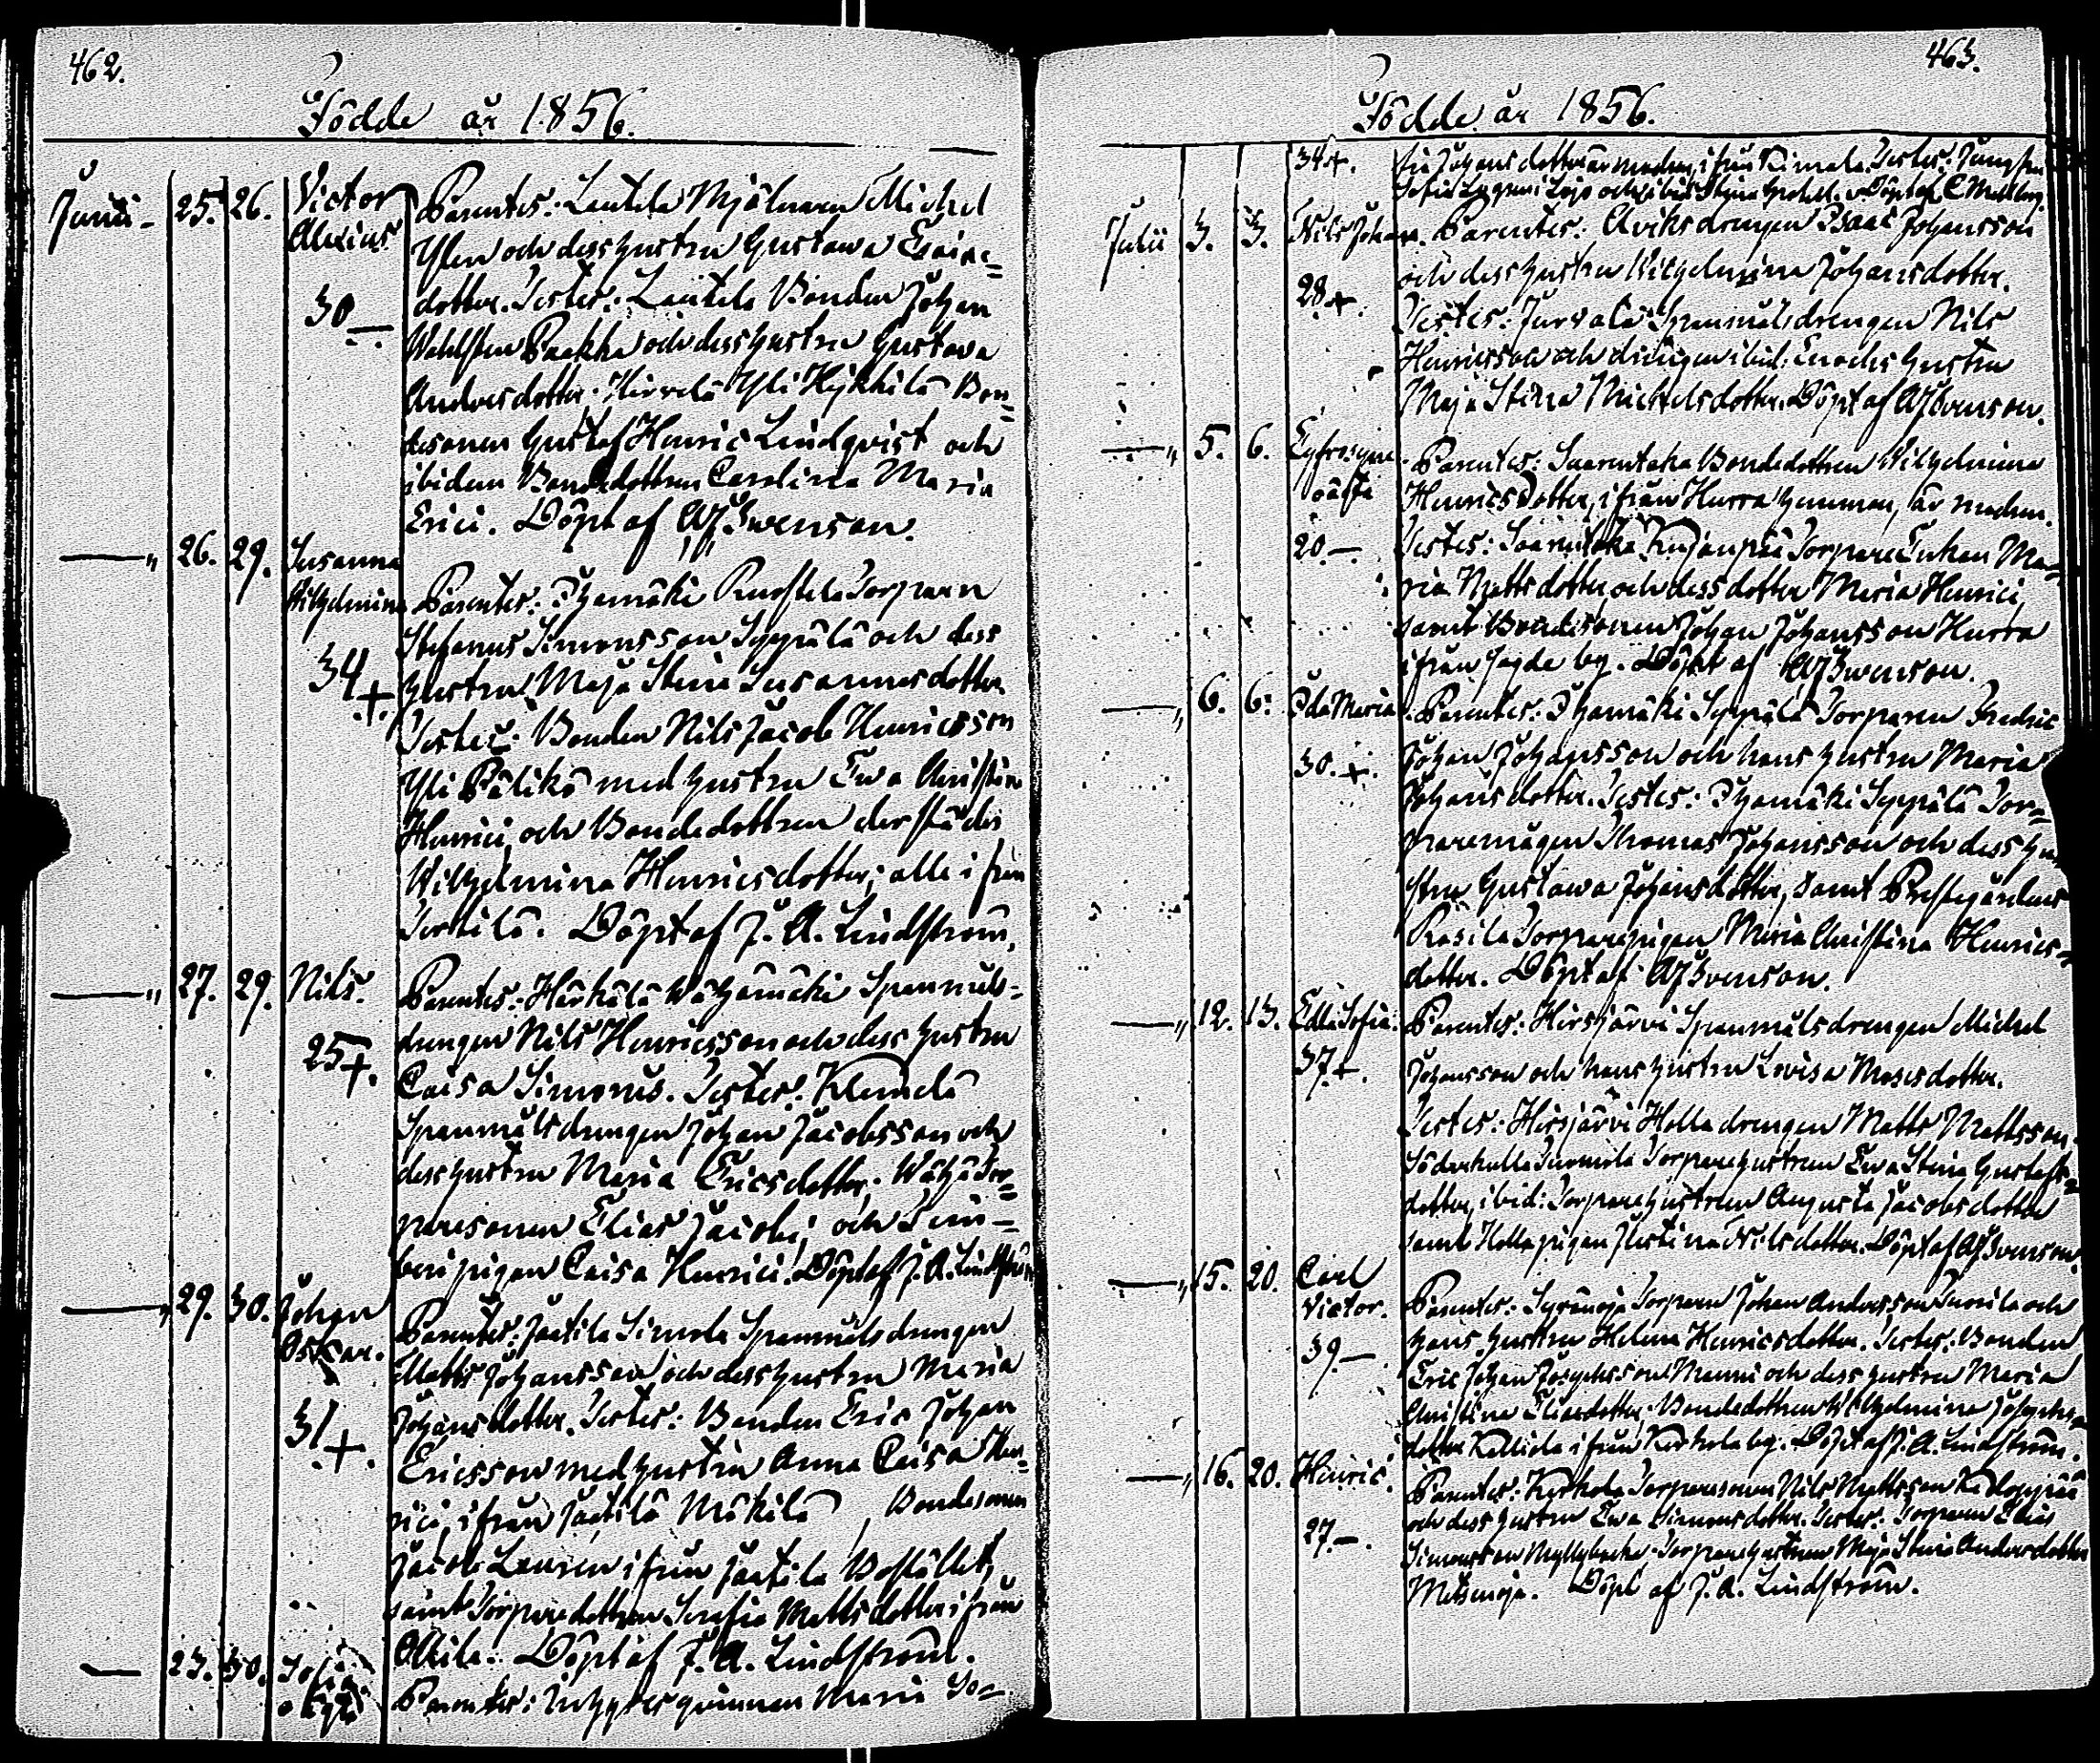 462.
Födde år 1856.
Junii - 25. 26. Victor Alexius 30 —
Parentes: Lautela Mjölnaren Michel
Ylen och dess hustru Gustava Esaias-
dotter. Testes: Lautela Bonden Johan
Wahlsten Paakka och dess hustru Gustava
Andersdotter. Hirvelä Yli Hykkilä Bon-
desonen Gustaf Henric Lindqvist och
ibidem Bondedottren Carolina Maria
Erici. Döpt af AJSwenson.
— „ 26. 29. Susanna Wilhelmina 34 +
Parentes: Ihamäki Torparen
Stefanus Simonsson Seppälä och dess
hustru Maja Stina Susannasdotter.
Testes: Bonden Nils Jacob Henricsson
Yli Pälikö med hustru Eva Christina
Henrici, och Bondedottren derstädes
Wilhelmina Henricsdotter; alle ifrån
Tertilä. Döpt af J. A. Lindström.
— „ 27. 29. Nils. 25 +.
Parentes: Härkälä Wähämäki Spanmåls-
drengen Nils Henricsson och dess hustru
Caisa Simonis. Testes: Klemelä
Spanmålsdrengen Johan Jacobsson och
dess hustru Maria Ericsdotter; Wähä Tor-
paresonen Elias Jacobi; och
pigan Caisa Henrici. Döpt af J. A. Lindström
— „ 29. 30. Johan Oskar. 31 +.
Parentes: Jaatila Simola Spanmålsdrengen
Matts Johansson och dess hustru Maria
Johansdotter. Testes: Bonden Eric Johan
Ericsson med hustru Anna Caisa Hen-
rici, ifrån Jaatila Mäkilä, Bondesonen
Jacob Lauren ifrån Jaatila Bostället,
samt Torparedottren Serafia Mattsdotter ifrån
Ollila. Döpt af J. A. Lindström.
— 23. 30. Sofia oägta
Parentes: Inhyses qvinnan Maria So-
463.
Födde år 1856.
34 +. fia Johansdotter är modren, ifrån Kimala. Testes: Jungfrun
Sofia i Lojo och ibid: Stina Döpt af C Mellberg.
Julii 3. 3. Nils Johan. 28 +.
Parentes: Aviks drengen Isaac Johansson
och dess hustru Wilhelmina Johansdotter.
Testes: Jurvala Spanmålsdrengen Nils
Henricsson och drängen ibid: Enochs hustru
Maja Stina Michelsdotter. Döpt af AJSwenson.
— „ 5. 6. Eyfrosyne oäkta 20 —
Parentes: Saarentaka Bondedottren Wilhelmina
Henricsdotter, ifrån Hurra hemman, är modren.
Testes: Saarentaka Kujanpää Torpare Enkan Ma-
ria Mattsdotter och dess dotter Maria Henrici,
samt Bondesonen Johan Johansson Hurra
ifrån sagde by. Döpt af AJSwenson.
— „ 6. 6. Ida Maria. 30. +.
Parentes: Ihamäki Seppälä Torparen Fredric
Johan Johansson och hans hustru Maria
Johansdotter. Testes: Ihamäki Seppälä Tor-
paremågen Thomas Johansson och dess hu-
stru Gustawa Johansdotter, samt Prestegårdens
Rasila Torparepigan Maria Christina Henrics-
dotter. Döpt af AJSwenson.
— „ 12. 13. Edla Sofia. 37 +.
Parentes: Hirsjärvi Spanmålsdrengen Michel
Johansson och hans hustru Lovisa Mosesdotter.
Testes: Hirsjärvi Holla drengen Matts Mattsson.
Söderkulla Torparehustrun Ewa Stina Gustafs-
dotter, ibid: Torparehustrun Augusta Jacobsdotter
samt Holla pigan Justina Nilsdotter. Döpt af AJSwenson.
— „ 15. 20. Carl Victor. 39 —
Parentes: Syränoja Torparen Johan Andersson och
hans hustru Helena Henricsdotter. Testes: Bonden
Eric Johan Josephsson Manni och dess hustru Maria
Christina Eliaedotter; Bondedottren Wilhelmina Josephs-
dotter ifrån Kerkola by. Döpt af J. A. Lindström.
— „ 16. 20. Henric. 27. —.
Parentes: Kerkola Torparesonen Nils Mattsson
och dess hustru Ewa Simonsdotter. Testes: Torparen Elias
Simonsson Myllybacka. Torparehustrun Maja Stina Andersdotter
Metsänoja. Döpt af J. A. Lindström.